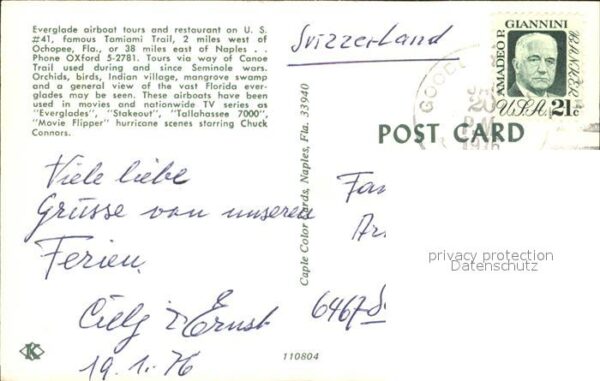 Everglade airboat tours and restaurant on U. S.
#41, famous Tamiami Trail, 2 miles west of
Ochopee, Fla., or 38 miles east of Naples . .
Phone OXford 5-2781. Tours via way of Canoe
Trail used during and since Seminole wars.
Orchids, birds, Indian village, mangrove swamp
and a general view of the vast Florida ever-
glades may be seen. These airboats have been
used in movies and nationwide TV series as
"Everglades", "Stakeout", "Tallahassee 7000",
"Movie Flipper" hurricane scenes starring Chuck
Connors.
Svizzerland
AMADEO P. GIANNINI
BANKER
U.S.A. 21c
20
1976
POST CARD
Caple Color Cards, Naples, Fla. 33940
Viele liebe
Grüsse von unseren
Ferien.
Ernst
19.1.76
Fam
6467
privacy protection
Datenschutz
K
110804